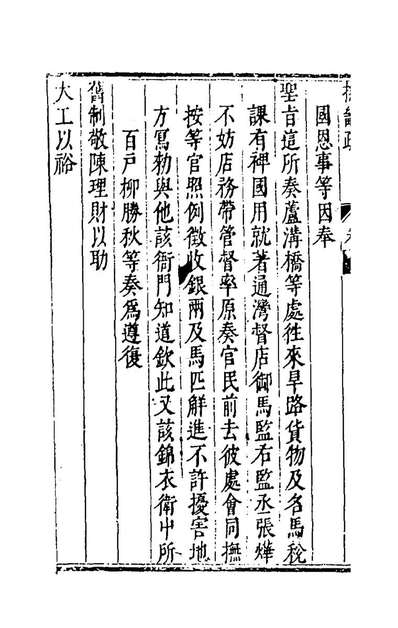 國恩事等因奉
聖旨這所奏蘆溝橋等處徃來旱路貨物及名馬稅
課有裨國用就著通灣督店御馬監右監丞張燁
不妨店務帶管督率原奏官民前去彼處會同撫
按等官照例徵收銀兩及馬匹觧進不許擾害地
方寫勑與他該衙門知道欽此又該錦衣衛中所
百戶柳勝秋等奏爲遵復
舊制敬陳理財以助
大工以裕